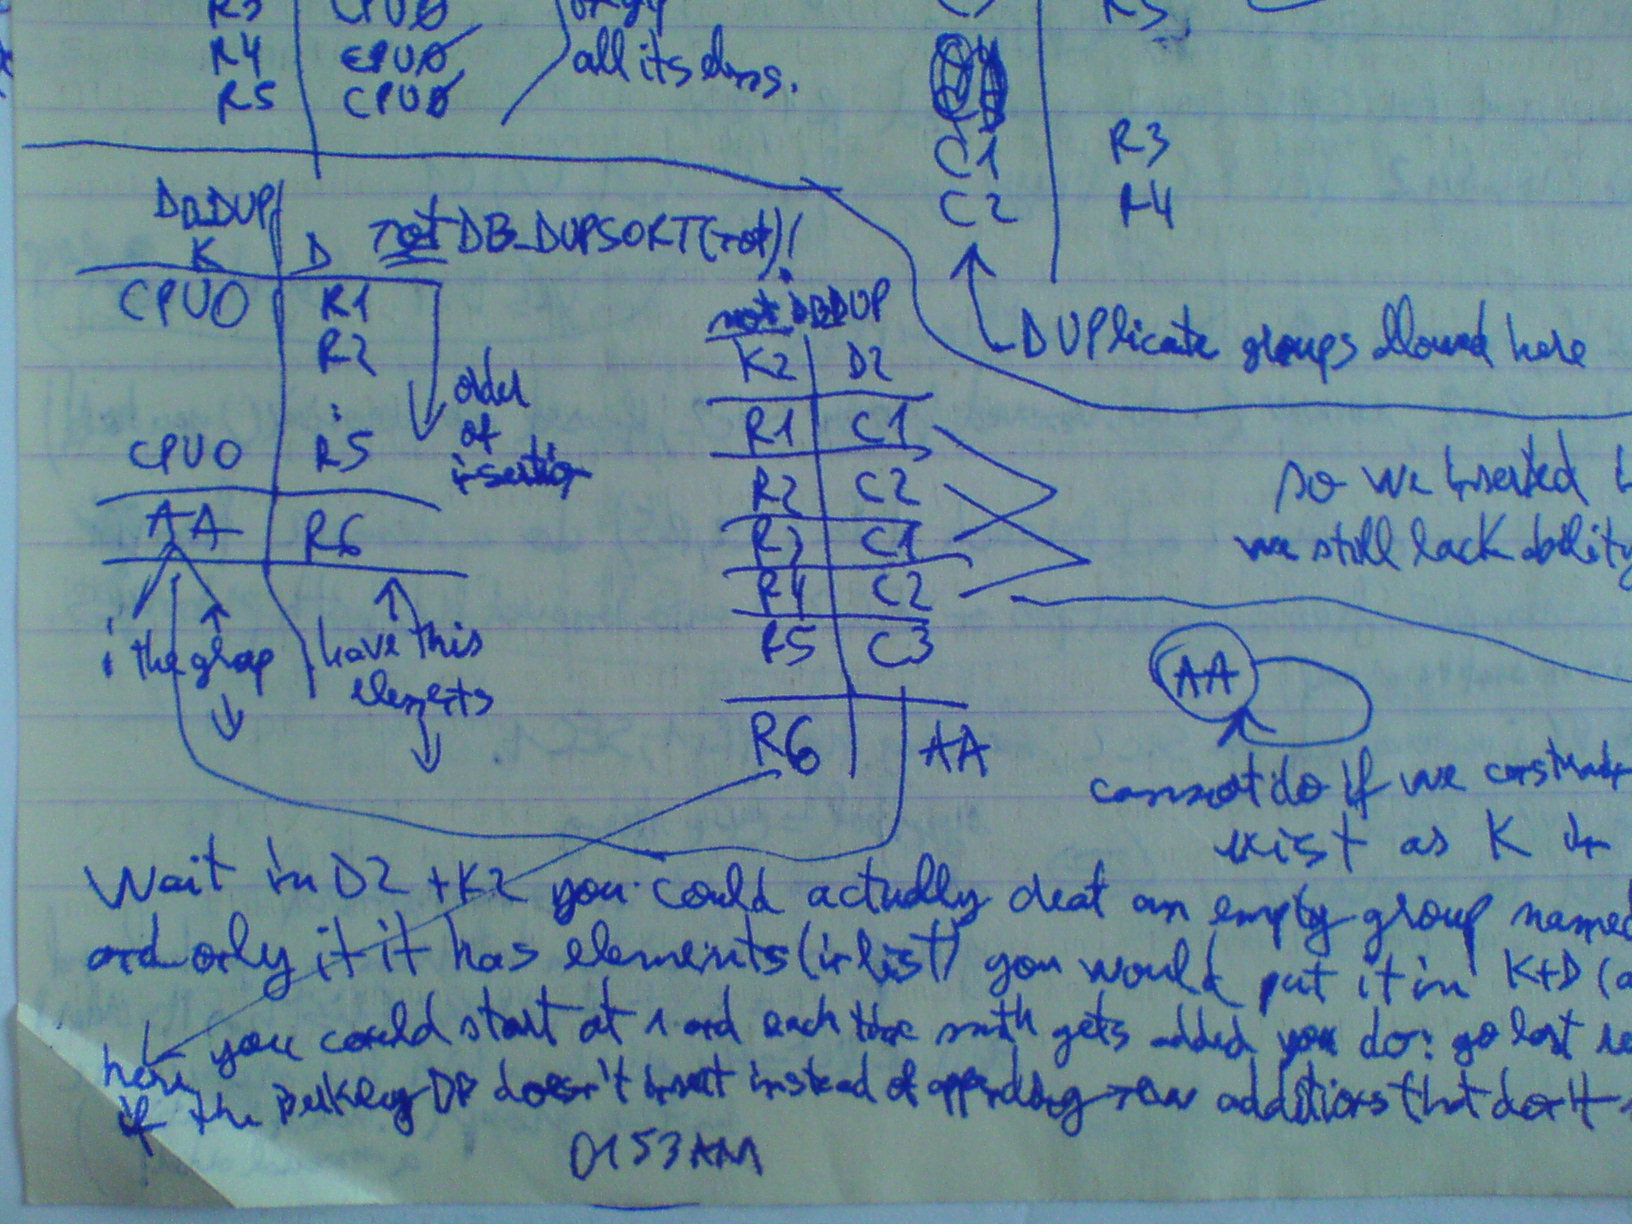 R3 CPU0
R4 CPU0
R5 CPU0
all its elems.
R3
C1 R3
C2 R4
DUPlicate groups allowed here
DB_DUP
K D
not DB_DUPSORT(not)!
CPU0 R1
R2
:
CPU0 R5
AA R6
order
of
insertion
the group
have this
elements
not DB_DUP
K2 D2
R1 C1
R2 C2
R3 C1
R4 C2
R5 C3
R6 AA
so we inserted
we still lack ability
AA
cannot do if we
exist as K in
Wait in D2 + K2 you could actually creat an empty group named
and only if it has elements (in list) you would put it in K+D
here you could start at 1 and each time smth gets added you do: go last
if the Berkeley DB doesn't insert instead of appending new additions that don't
0153AM